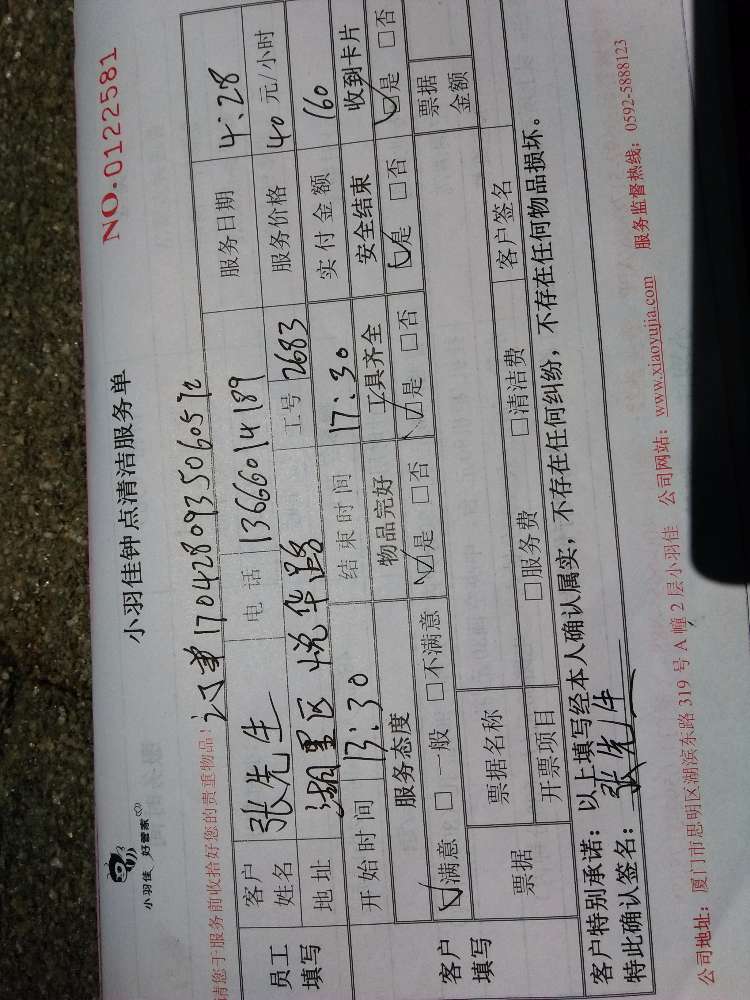 小羽佳 好管家
小羽佳钟点清洁服务单
NO.0122581
请您于服务前收拾好您的贵重物品! 订单1704280935060572
员工填写 客户姓名 张先生 电话 13666014189 服务日期 4:28
地址 湖里区悦华路 工号 2683 服务价格 40元/小时
客户填写 开始时间 13:30 结束时间 17:30 实付金额 160
服务态度 物品完好 工具齐全 安全结束 收到卡片
☑满意 □一般 □不满意 ☑是 □否 ☑是 □否 ☑是 □否 ☑是 □否
票据 票据名称 票据金额
开票项目 □服务费 □清洁费 客户签名
客户特别承诺：以上填写经本人确认属实，不存在任何纠纷，不存在任何物品损坏。
特此确认签名：张先生
公司地址：厦门市思明区湖滨东路319号A幢2层小羽佳 公司网站：www.xiaoyujia.com 服务监督热线：0592-5888123